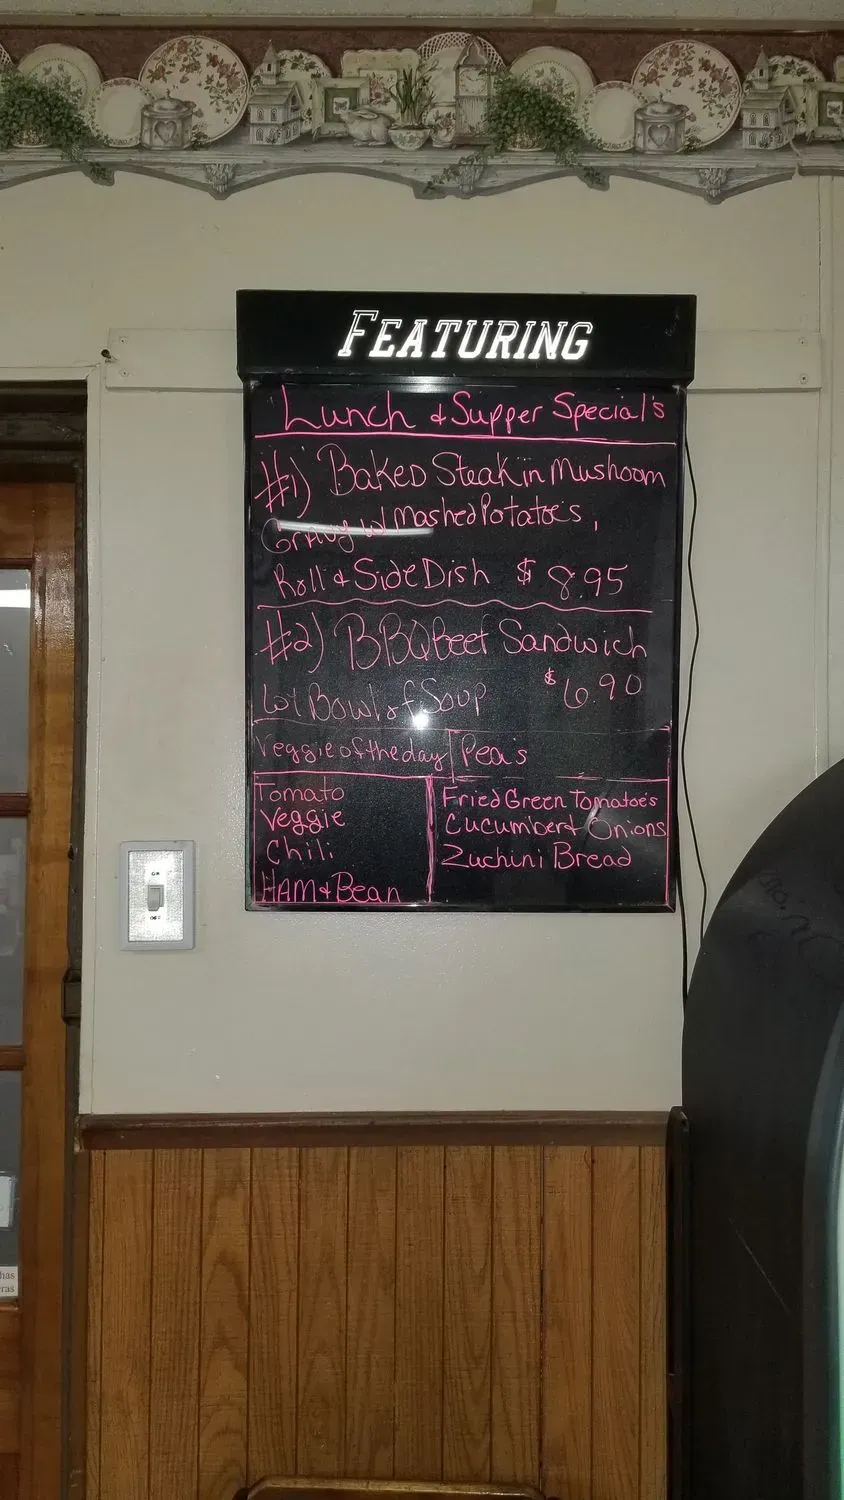 FEATURING
Lunch & Supper Special's
#1) Baked Steak in Mushoom
Gravy w/ Mashed Potatoe's,
Roll & Side Dish $8.95
#2) BBQ Beef Sandwich
w/ Bowl of Soup $6.90
Veggie of the day Pea's
Tomato
Veggie
Chili
HAM & Bean
Fried Green Tomatoe's
Cucumber & Onions
Zuchini Bread
ON
OFF
has
ras